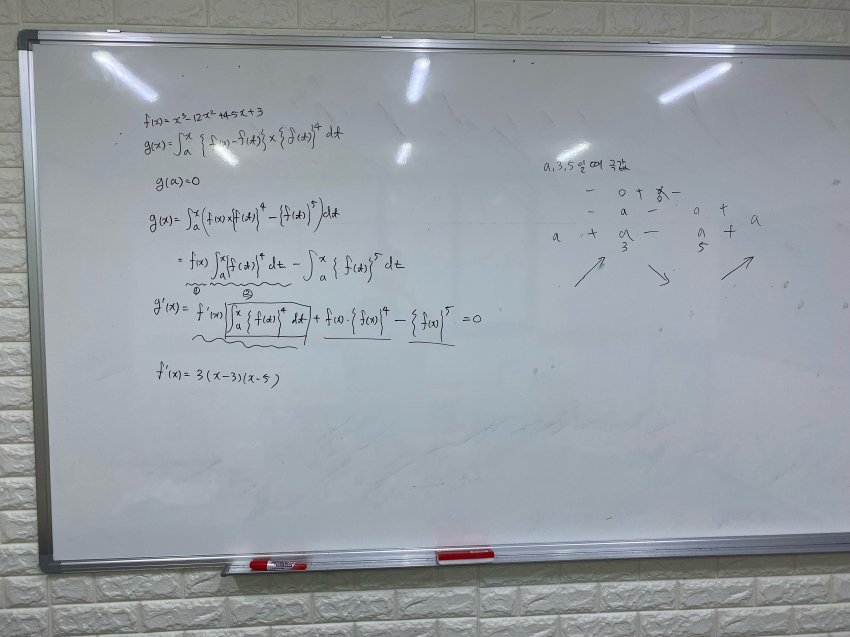 f(x)=x³-12x²+45x+3
g(x)=∫ₐˣ {f(x)-f(t)}×{f(t)}⁴ dt
g(a)=0
g(x)=∫ₐˣ(f(x)×{f(t)}⁴-{f(t)}⁵)dt
=f(x)∫ₐˣ{f(t)}⁴dt-∫ₐˣ{f(t)}⁵dt
① ②
g'(x)=f'(x)∫ₐˣ{f(t)}⁴dt+f(x)·{f(x)}⁴-{f(x)}⁵=0
f'(x)=3(x-3)(x-5)
a,3,5일 때 극값
- 0 + -
- a - 0 +
a + a - a + a
3 5